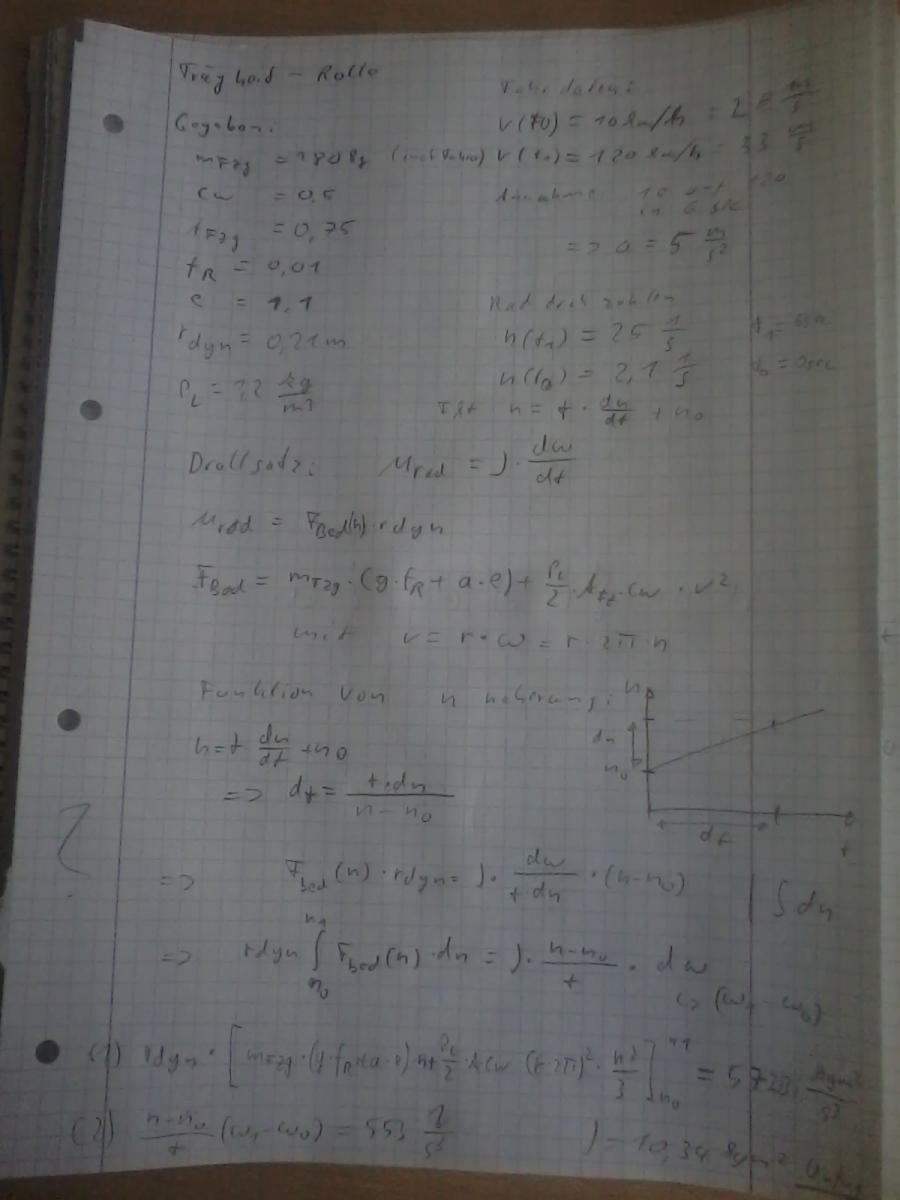 Trägheit - Rolle
Gegeben:
m_Fzg = 180 kg
cw = 0,5
A_Fzg = 0,75
f_R = 0,01
e = 1,1
r_dyn = 0,21 m
ρ_L = 1,2 kg/m³
Fahrdaten:
v(t0) = 10 km/h = 2,8 m/s
v(t1) = 120 km/h = 33 m/s
Annahme 10 auf 120
in 6 sec
=> a = 5 m/s²
Rad dreh zahlen
n(t1) = 25 1/s t1 = 6sec
n(t0) = 2,1 1/s t0 = 0sec
n = t · dn/dt + n0
Drallsatz: M_rad = J · dω/dt
M_rad = F_Bed(n) · rdyn
F_Bed = m_Fzg · (g · f_R + a · e) + ρ_L/2 · A_Fz · cw · v²
mit v = r · ω = r · 2π · n
Funktion von n näherung:
n = t dn/dt + n0
=> dt = t·dn / n - n0
n dn n0 dt t
?
=> F_Bed(n) · rdyn = J · dω / t·dn · (n - n0) | ∫ dn
=> rdyn ∫ n0 n1 F_Bed(n) · dn = J · n-n0 / t · dω
↳ (ω1 - ω0)
(1) rdyn · [ m_Fzg · (g · f_R + a · e) · n + ρ_L/2 · A cw (r 2π)² · n³/3 ] n0 n1 = kgm²/s³
(2) n-n0 / t (ω1 - ω0) = 553 1/s² J = 10,34 kgm²